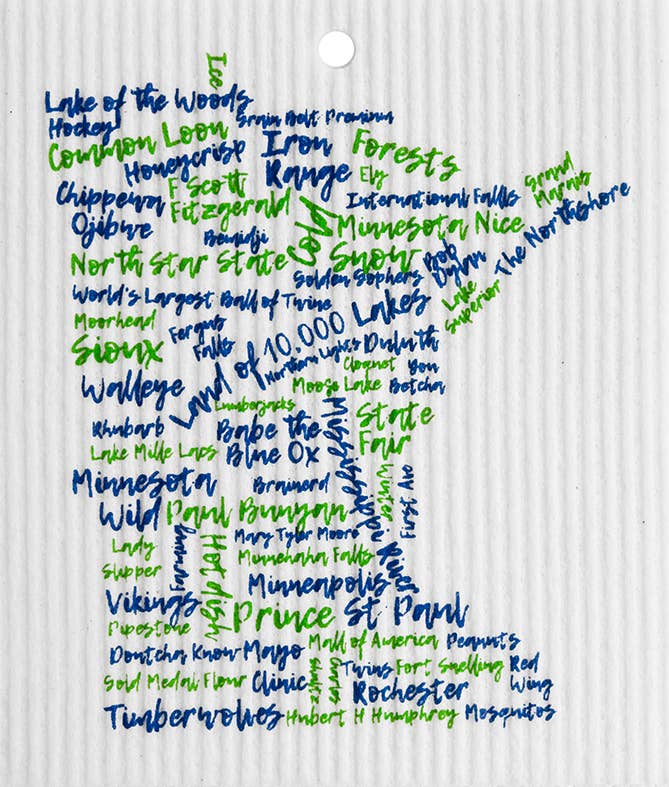 Ice
Lake of the Woods
Hockey
Grain Belt Premium
Common Loon
Iron
Range
Forests
Honeycrisp
Ely
Chippewa
F Scott
Fitzgerald
International Falls
Grand
Marais
The Northshore
Ojibwe
Bemidji
Cold
Minnesota Nice
North Star State
Snow
Bob
Dylan
Golden Gophers
World's Largest Ball of Twine
Lake
Superior
Moorhead
Fergus
Falls
Land of 10,000 Lakes
Sioux
Northern Lights
Duluth
Cloquet
You
Betcha
Walleye
Moose Lake
Lumberjacks
Mississippi River
State
Fair
Rhubarb
Babe the
Blue Ox
Lake Mille Lacs
Minnesota
Wild
Brainerd
Winter
First Ave
Paul Bunyan
Lady
Slipper
Farming
Hot dish
Mary Tyler Moore
Minnehaha Falls
Minneapolis
Vikings
Prince
St Paul
Pipestone
Dontcha Know
Mayo
Clinic
Mall of America
Peanuts
Gold Medal Flour
Charles
Shultz
Twins
Fort Snelling
Red
Wing
Rochester
Timberwolves
Hubert H Humphrey
Mosquitos